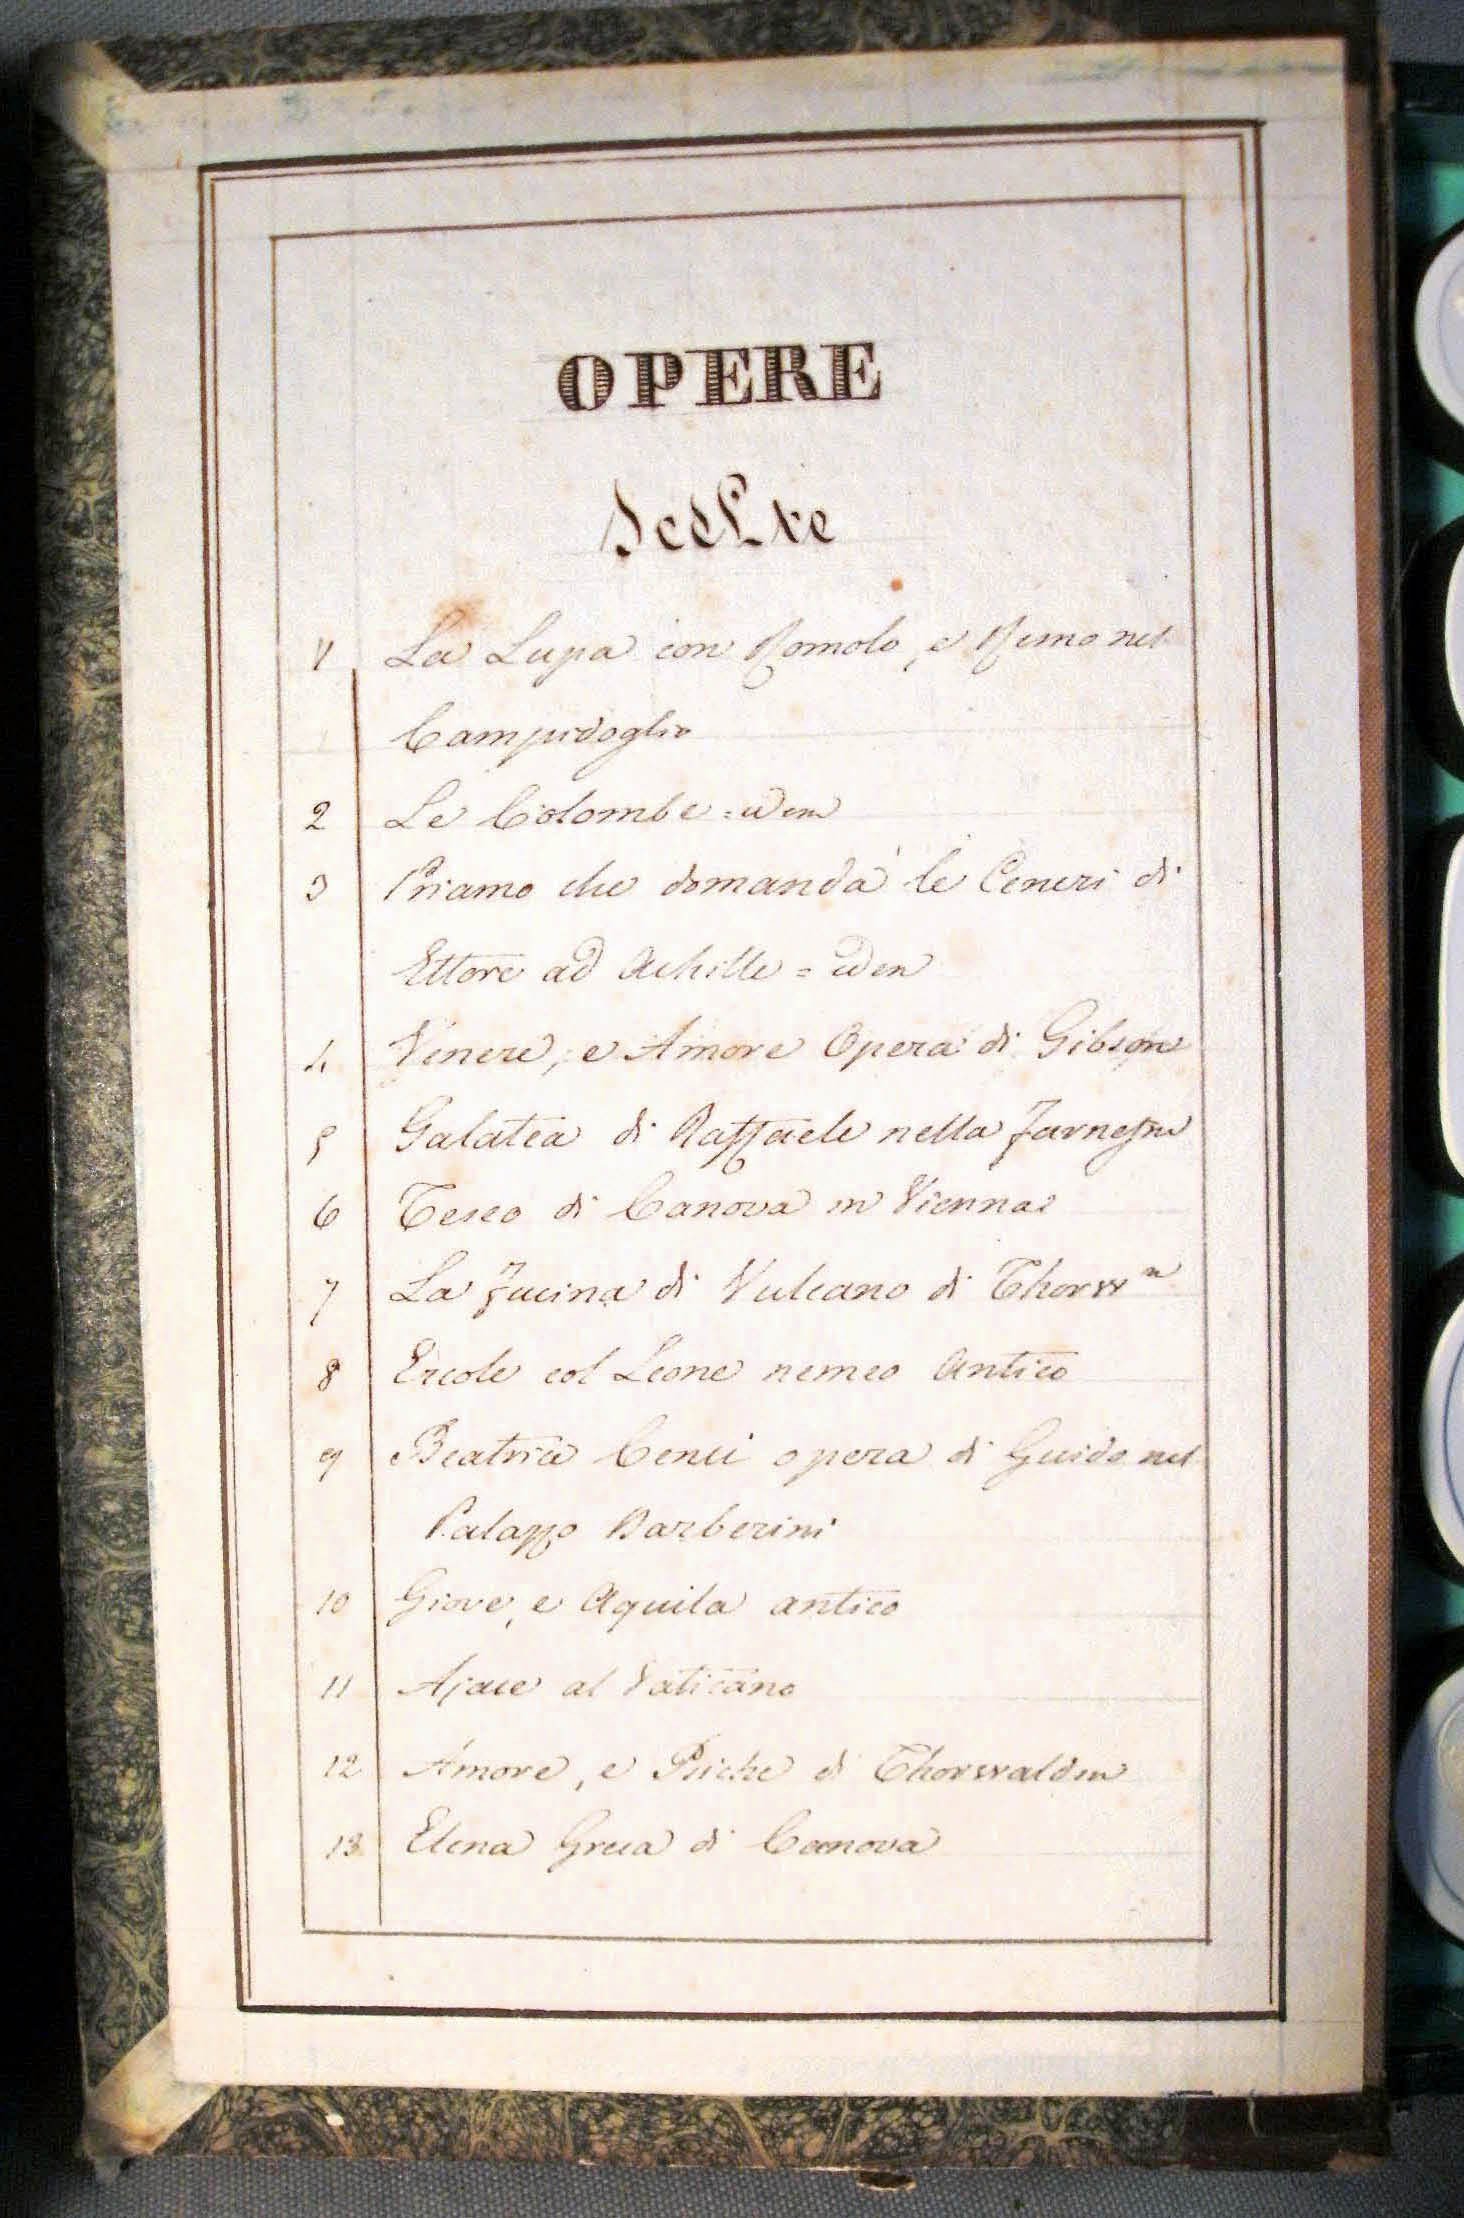 OPERE
Scelte
1 La Lupa con Romolo, e Remo nel
Campidoglio
2 Le Colombe = idem
3 Priamo che domanda le Ceneri di
Ettore ad Achille = idem
4 Venere, e Amore Opera di Gibson
5 Galatea di Raffaele nella Farnesina
6 Teseo di Canova in Vienna
7 La Fucina di Vulcano di Thorwn
8 Ercole col Leone nemeo Antico
9 Beatrice Cenci opera di Guido nel
Palazzo Barberini
10 Giove, e Aquila antico
11 Ajace al Vaticano
12 Amore, e Psiche di Thorwalden
13 Elena Greca di Canova